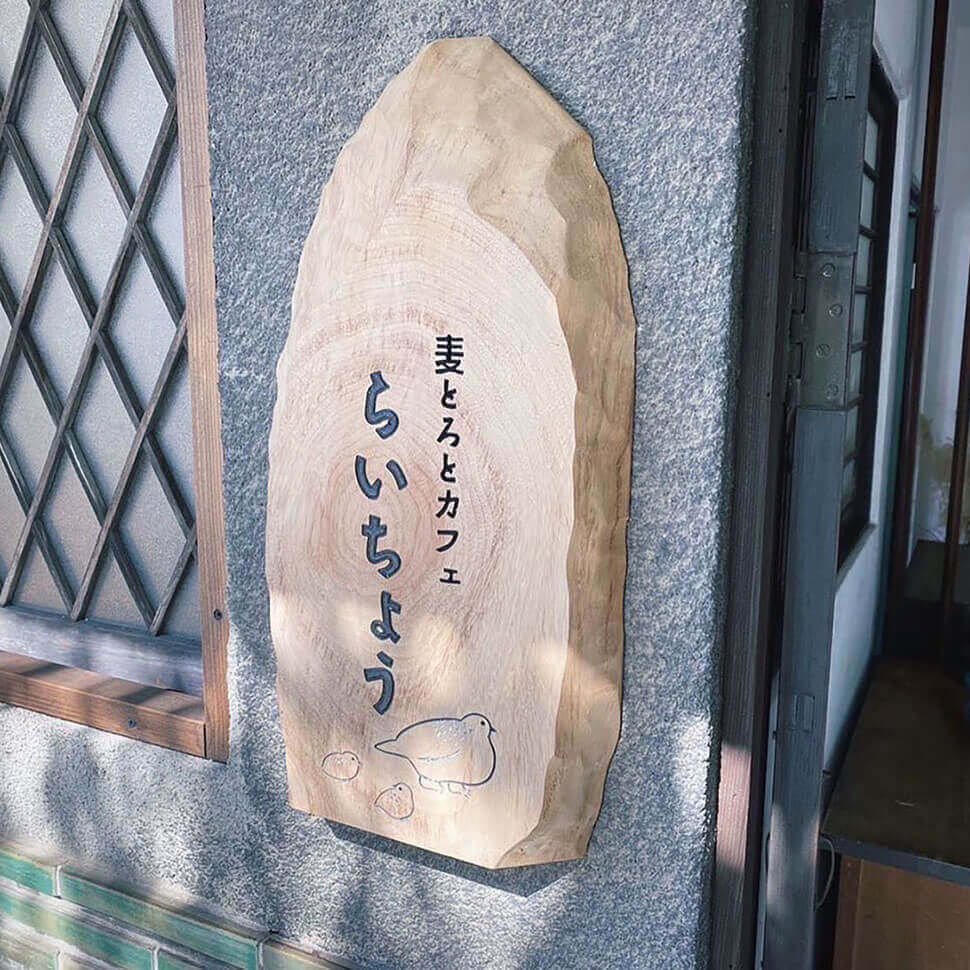 麦とろとカフェ
らいちょう